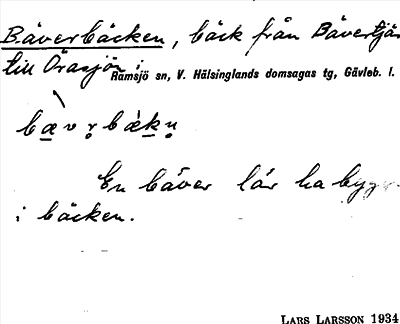 Bäverbäcken, bäck från Bävertjä
till Örasjön.
Ramsjö sn, V. Hälsinglands domsagas tg, Gävleb. l.
En bäver lär ha bygg
i bäcken.
LARS LARSSON 1934